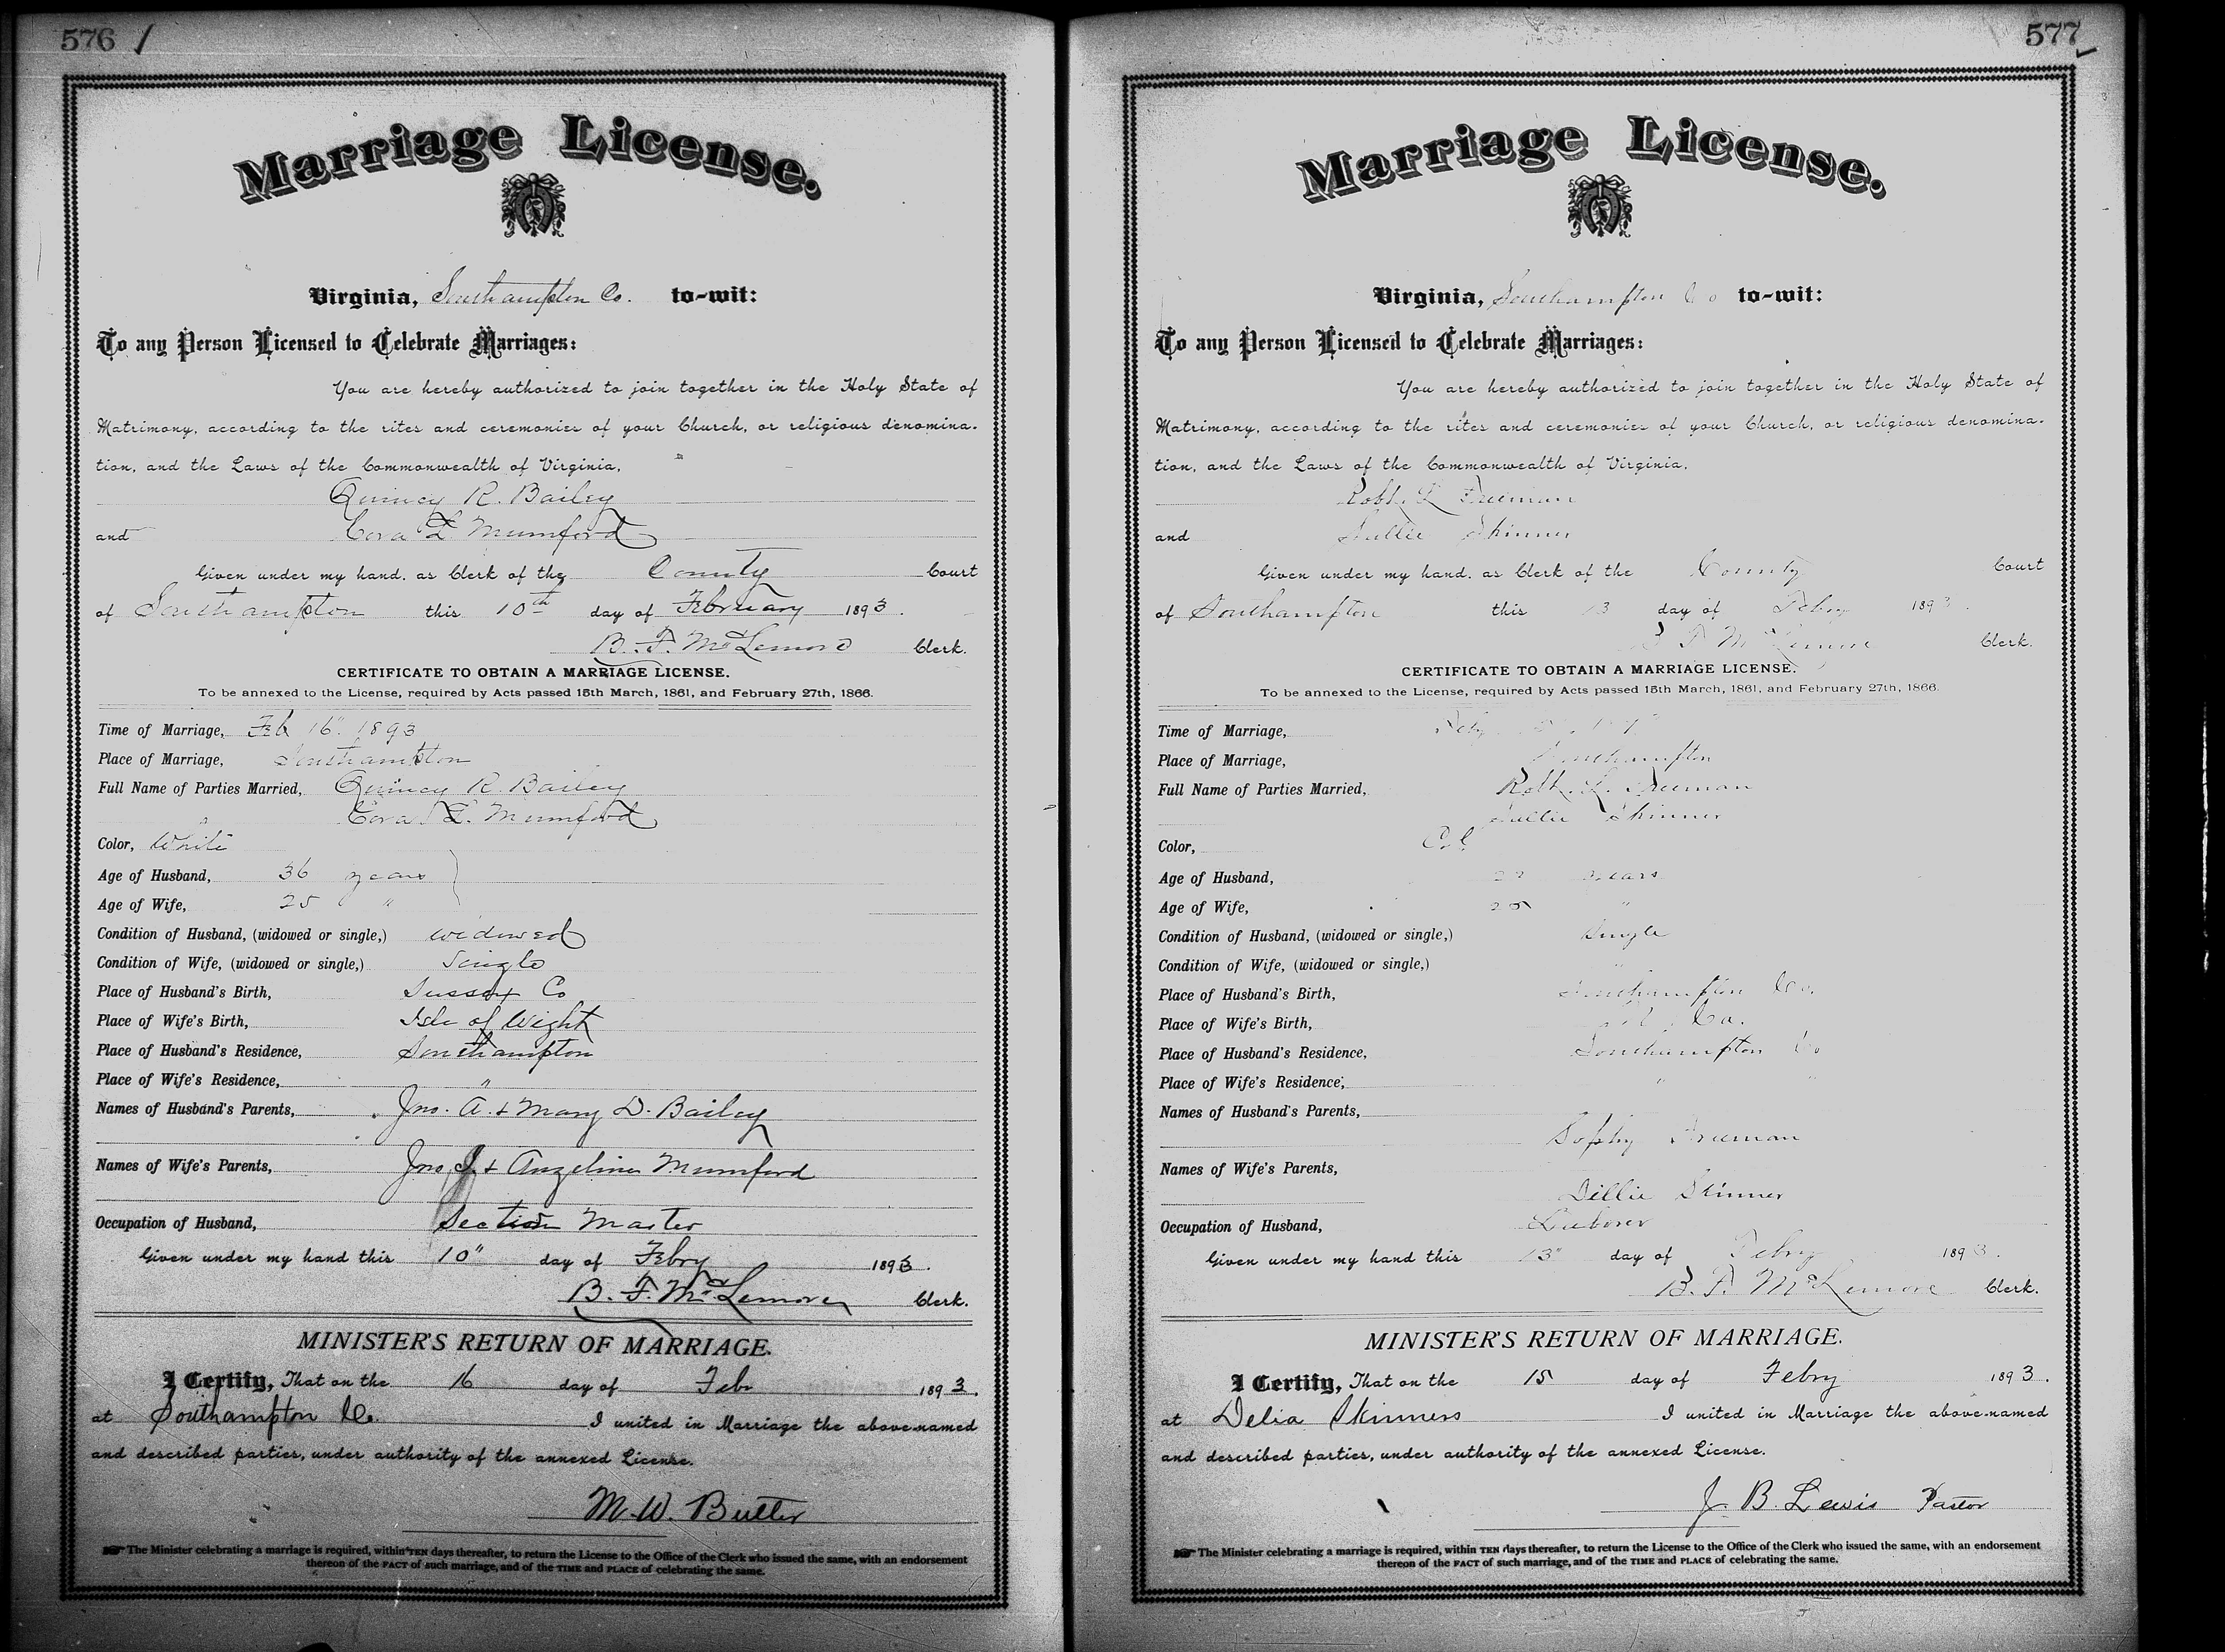 576
Marriage License.
Virginia, Southampton Co. to-wit:
To any Person Licensed to Celebrate Marriages:
You are hereby authorized to join together in the Holy State of
Matrimony, according to the rites and ceremonies of your Church, or religious denomina-
tion, and the Laws of the Commonwealth of Virginia,
Quincy R. Bailey
and Cora L. Mumford
Given under my hand, as Clerk of the County Court
of Southampton this 10th day of February 1893.
B. F. McLemore Clerk.
CERTIFICATE TO OBTAIN A MARRIAGE LICENSE.
To be annexed to the License, required by Acts passed 15th March, 1861, and February 27th, 1866.
Time of Marriage, Feb 16" 1893
Place of Marriage, Southampton
Full Name of Parties Married, Quincy R. Bailey
Cora L. Mumford
Color, White
Age of Husband, 36 years
Age of Wife, 25 "
Condition of Husband, (widowed or single,) widowed
Condition of Wife, (widowed or single,) Single
Place of Husband's Birth, Sussex Co
Place of Wife's Birth, Isle of Wight
Place of Husband's Residence, Southampton
Place of Wife's Residence, "
Names of Husband's Parents, Jno. A. & Mary D. Bailey
Names of Wife's Parents, Jno J. & Angelina Mumford
Occupation of Husband, Section Master
Given under my hand this 10" day of Febry 1893.
B. F. McLemore Clerk.
MINISTER'S RETURN OF MARRIAGE.
I Certify, That on the 16 day of Feb 1893.
at Southampton Co. I united in Marriage the above-named
and described parties, under authority of the annexed License.
M. W. Butler
The Minister celebrating a marriage is required, within TEN days thereafter, to return the License to the Office of the Clerk who issued the same, with an endorsement
thereon of the FACT of such marriage, and of the TIME and PLACE of celebrating the same.
577
Marriage License.
Virginia, Southampton Co to-wit:
To any Person Licensed to Celebrate Marriages:
You are hereby authorized to join together in the Holy State of
Matrimony, according to the rites and ceremonies of your Church, or religious denomina-
tion, and the Laws of the Commonwealth of Virginia,
Robt. L Freeman
and Sallie Skinner
Given under my hand, as Clerk of the County Court
of Southampton this 13 day of Febry 1893.
B F McLemore Clerk.
CERTIFICATE TO OBTAIN A MARRIAGE LICENSE.
To be annexed to the License, required by Acts passed 15th March, 1861, and February 27th, 1866.
Time of Marriage, Feby
Place of Marriage, Southampton
Full Name of Parties Married, Robt. L. Freeman
Sallie Skinner
Color, Col
Age of Husband, years
Age of Wife, 25 "
Condition of Husband, (widowed or single,) Single
Condition of Wife, (widowed or single,)
Place of Husband's Birth, Southampton Co.
Place of Wife's Birth, Co.
Place of Husband's Residence, Southampton Co
Place of Wife's Residence, " "
Names of Husband's Parents,
Sophy Freeman
Names of Wife's Parents,
Dillie Skinner
Occupation of Husband, Laborer
Given under my hand this 13" day of Febry 1893.
B. F. McLemore Clerk.
MINISTER'S RETURN OF MARRIAGE.
I Certify, That on the 15 day of Febry 1893.
at Delia Skinners I united in Marriage the above-named
and described parties, under authority of the annexed License.
J. B. Lewis Pastor
The Minister celebrating a marriage is required, within TEN days thereafter, to return the License to the Office of the Clerk who issued the same, with an endorsement
thereon of the FACT of such marriage, and of the TIME and PLACE of celebrating the same.